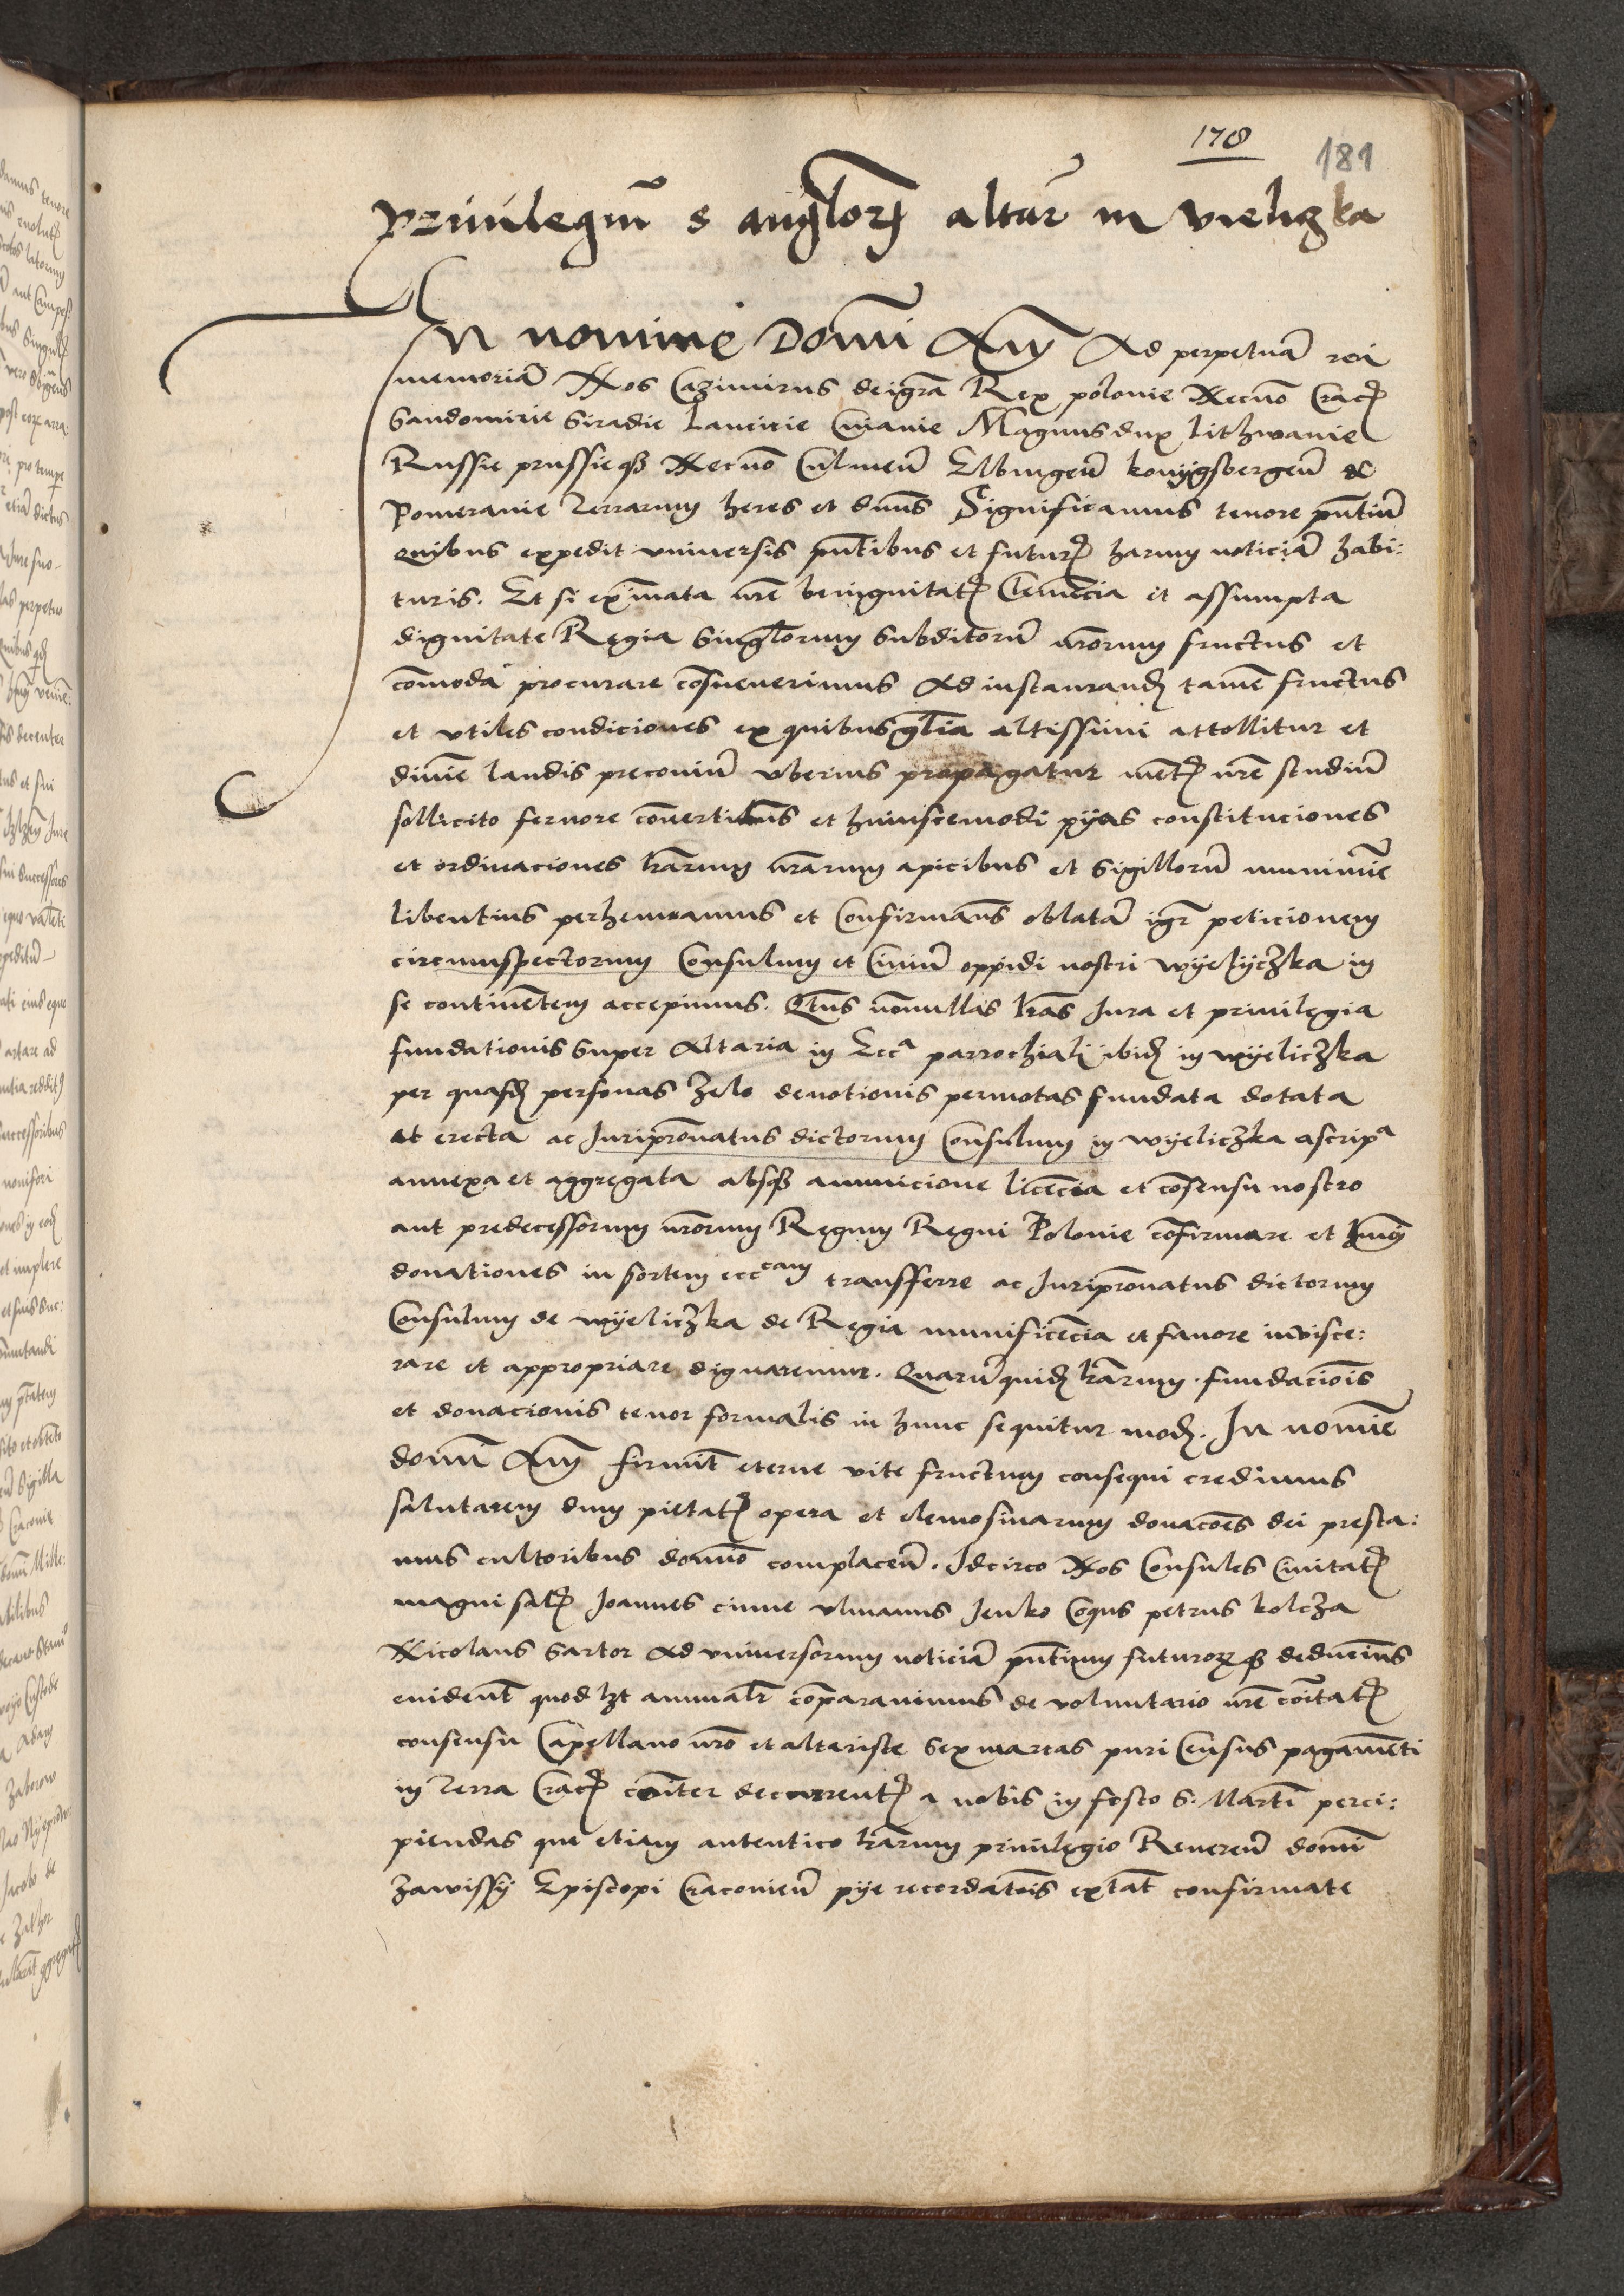 178
181
Priuilegiū s anglorꝫ altār in vieligka
In nomine Domi Amē Ad perpetuā rei
memoriā Nos Cazimirus dei grā Rex polonie Necnō Crac
Sandomirie Siradie Lancicie Cuiauie Magnus dux lithwanie
Russie prussieqꝫ Necnō Culmeñ Elbingeñ konygsbergeñ et
Pomeranie Terrarum heres et dñus Significamus tenore pñtiū
Quibus expedit vniuersis pñtibus et futurꝭ harum noticiā habi:
turis. Et si ex īnata nrē benignitatꝭ Clemēcia et assumpta
dignitate Regia Singlorum Subditorū nrorum fructus et
cōmoda procurare cōsueuerimus Ad instaurandꝭ tamē fructus
et vtiles condiciones ex quibus glia altissimi attollitur et
diuīe laudis preconiū vberius propagatur mētꝭ nrē studiū
sollicito feruore cōuertimus et huiuscemodi pyas constituciones
et ordinaciones lrārum nrārum apicibus et sigillorū munimīe
libentius perhennamus et Confirmams oblatā igr̄ peticionem
circumspectorum Consulum et Ciuiū oppidi nostri wyelyczka in
se continētem accepimus. Qtn̄s nōnullas lrās Jura et priuilegia
fundationis super Altaria in Ecca parrochiali ibidꝭ in wyeliczka
per quasdꝭ personas Zelo deuotionis permotas fundata dotata
et erecta ac Juripronatus dictorum Consulum in wyeliczka ascripa
annexa et aggregata absqꝫ ammicione licēcia et cōsensu nostro
aut predecessorum nrorum Regum Regni Polonie cōfirmare et hmōi
donationes in sortem ecccam transfferre ac Juripronatus dictorum
Consulum de wyeliczka de Regia munificēcia et fauore inuisce:
rare et appropriare dignaremur. Quarū quidꝭ lrārum fundaciōis
et donacionis tenor formalis in hunc sequitur modꝭ. In nomīe
domī Amē firmit eterne vite fructum consequi credimus
salutarem dum pietatꝭ opera et elemosinarum donacōes dei presta:
mus cultoribus domīo complaceñ. Idcirco Nos Consules Ciuitatꝭ
magni salꝭ Joannes ciuue vlmanus Jenko Coqus petrus kolcza
Nicolaus Sartor Ad vniuersorum noticiā pñtium futurorꝫqꝫ deducims
euident quod lzt annuatr̄ cōparauimus de voluntario nrē cōitatꝭ
consensu Capellano nrō et altariste sex marcas puri Census pagamēti
in Terra Cracꝭ cōiter decurrentꝭ a nobis in festo S. Martī perci:
piendas que etiam autentico lrārum priuilegio Reuereñ domī
Zawissy Episcopi Cracouieñ pye recordatiōis extāt confirmate